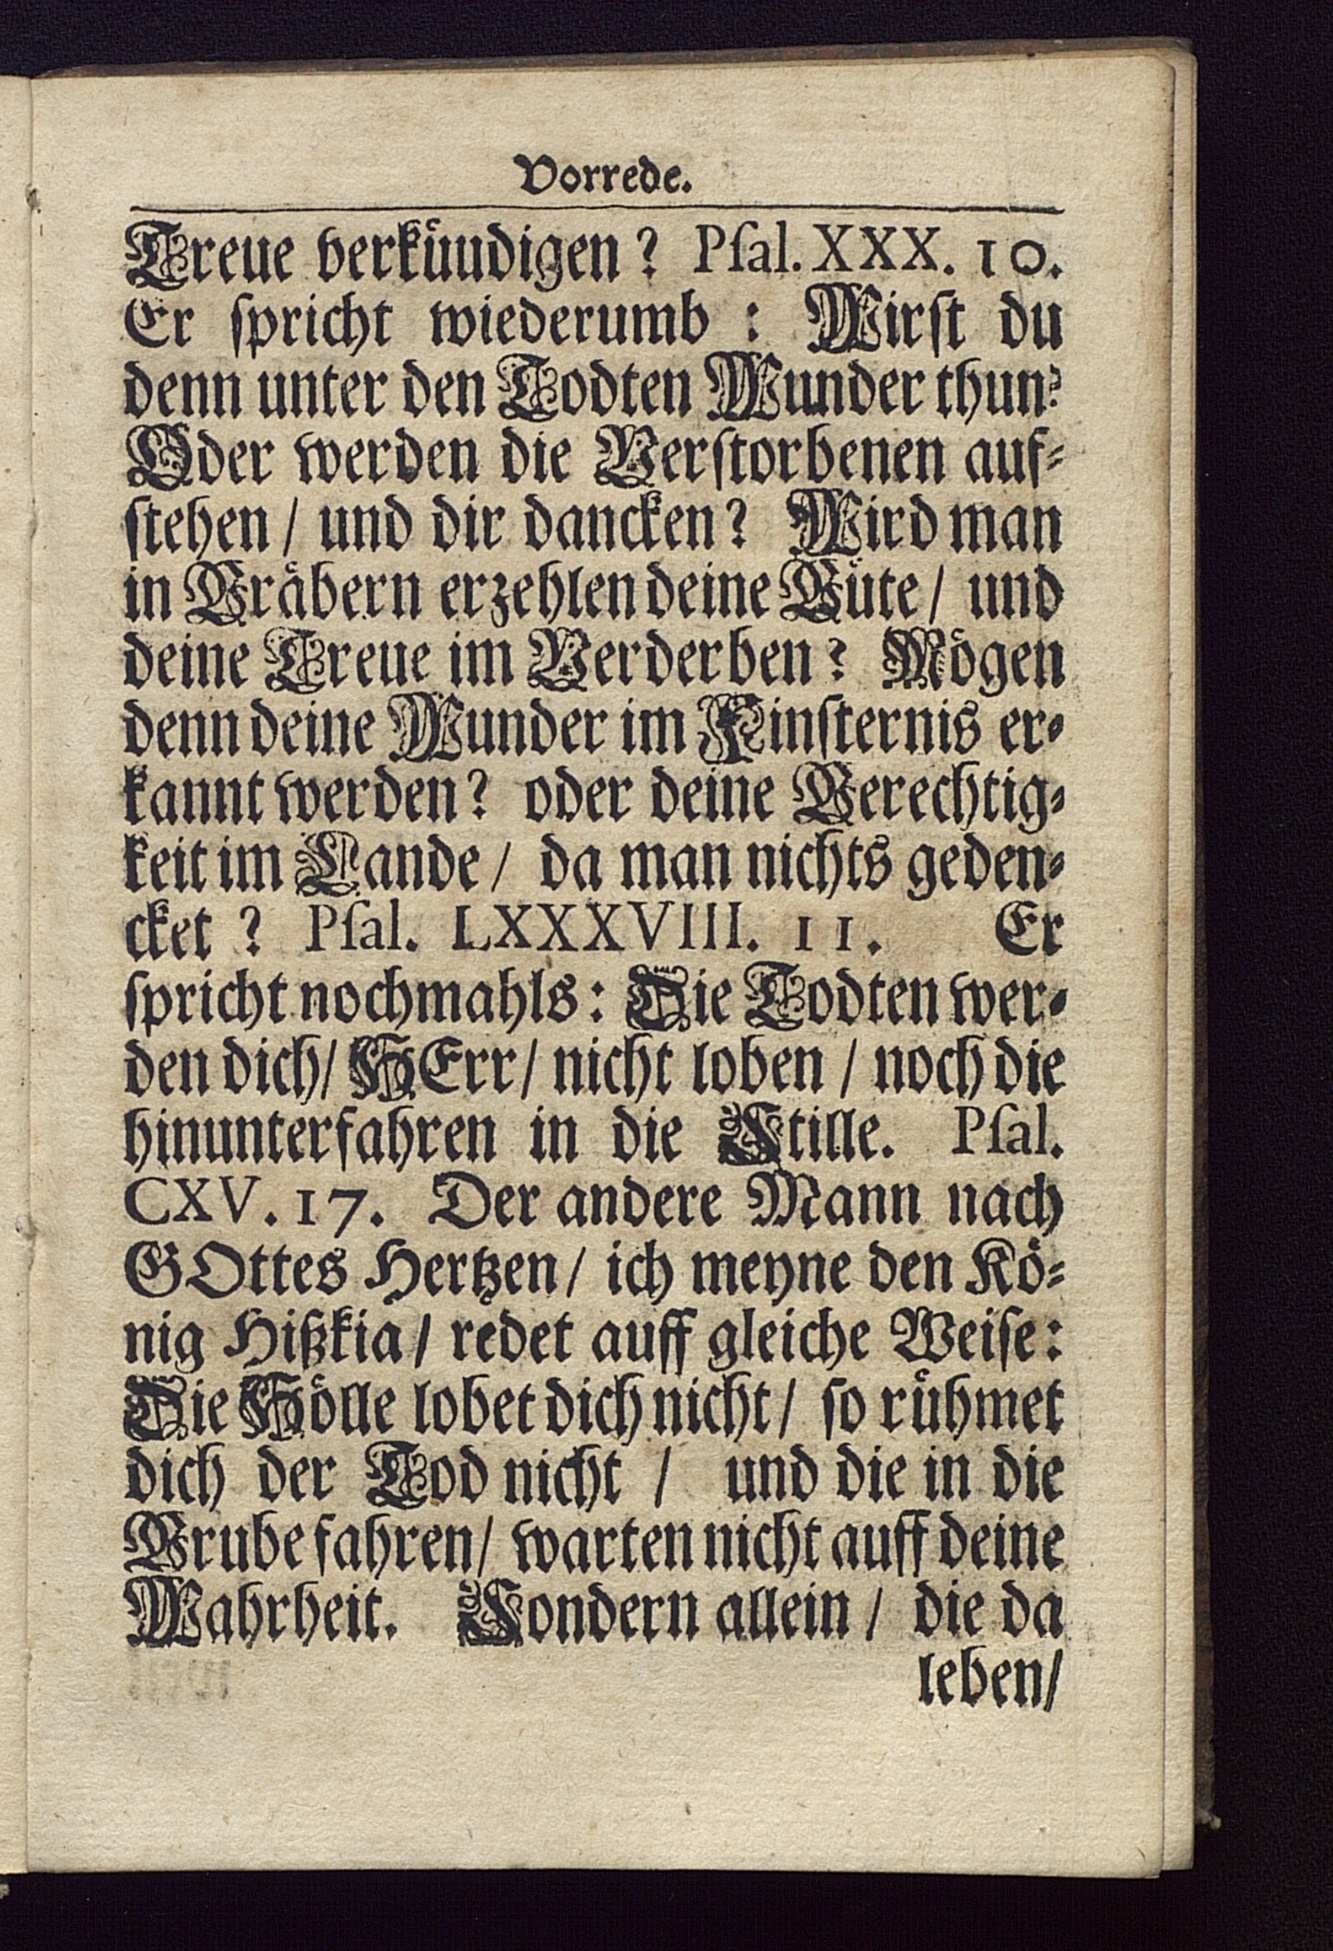 Vorrede.
Treue verkuͤudigen? Pſal. XXX. 10.
Er ſpricht wiederumb : Wirſt du
denn unter den Todten Wunder thun?
Oder werden die Verſtorbenen auf⸗
ſtehen / und dir dancken? Wird man
in Graͤbern erzehlen deine Guͤte / und
deine Treue im Verderben? Moͤgen
denn deine Wunder im Finſternis er⸗
kannt werden? oder deine Gerechtig⸗
keit im Lande / da man nichts geden⸗
cket ? Pſal. LXXXVIII. 11. Er
ſpricht nochmahls: Die Todten wer⸗
den dich / HErr / nicht loben / noch die
hinunterfahren in die Stille. Pſal.
CXV. 17. Der andere Mann nach
GOttes Hertzen / ich meyne den Koͤ⸗
nig Hißkia / redet auff gleiche Weiſe:
Die Hoͤlle lobet dich nicht / ſo ruͤhmet
dich der Tod nicht / und die in die
Grube fahren / warten nicht auff deine
Wahrheit. Sondern allein / die da
leben /